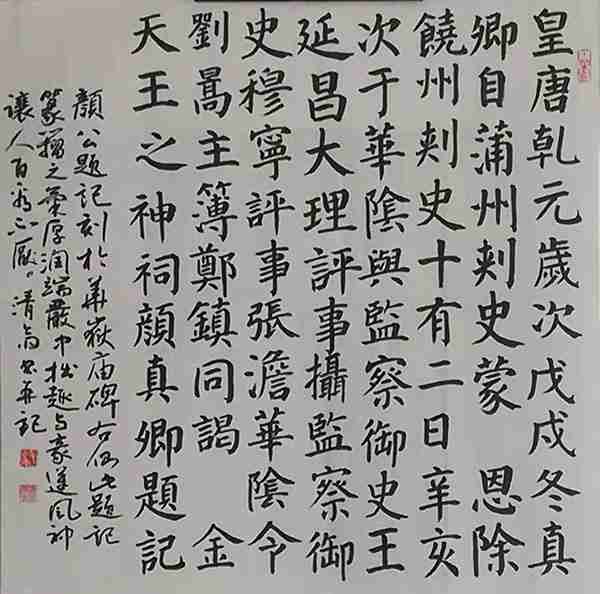 皇唐乾元歲次戊戌冬真
卿自蒲州刾史蒙 恩除
饒州刾史十有二日辛亥
次于華陰與監察御史王
延昌大理評事攝監察御
史穆寧評事張澹華陰令
劉暠主簿鄭鎮同謁 金
天王之神祠顔真卿題記
顏公題記刻於華嶽庙碑右侧此題記
篆籀之氣厚润端嚴中拙趣与豪邁风神
讓人百看不厭 清 书并記